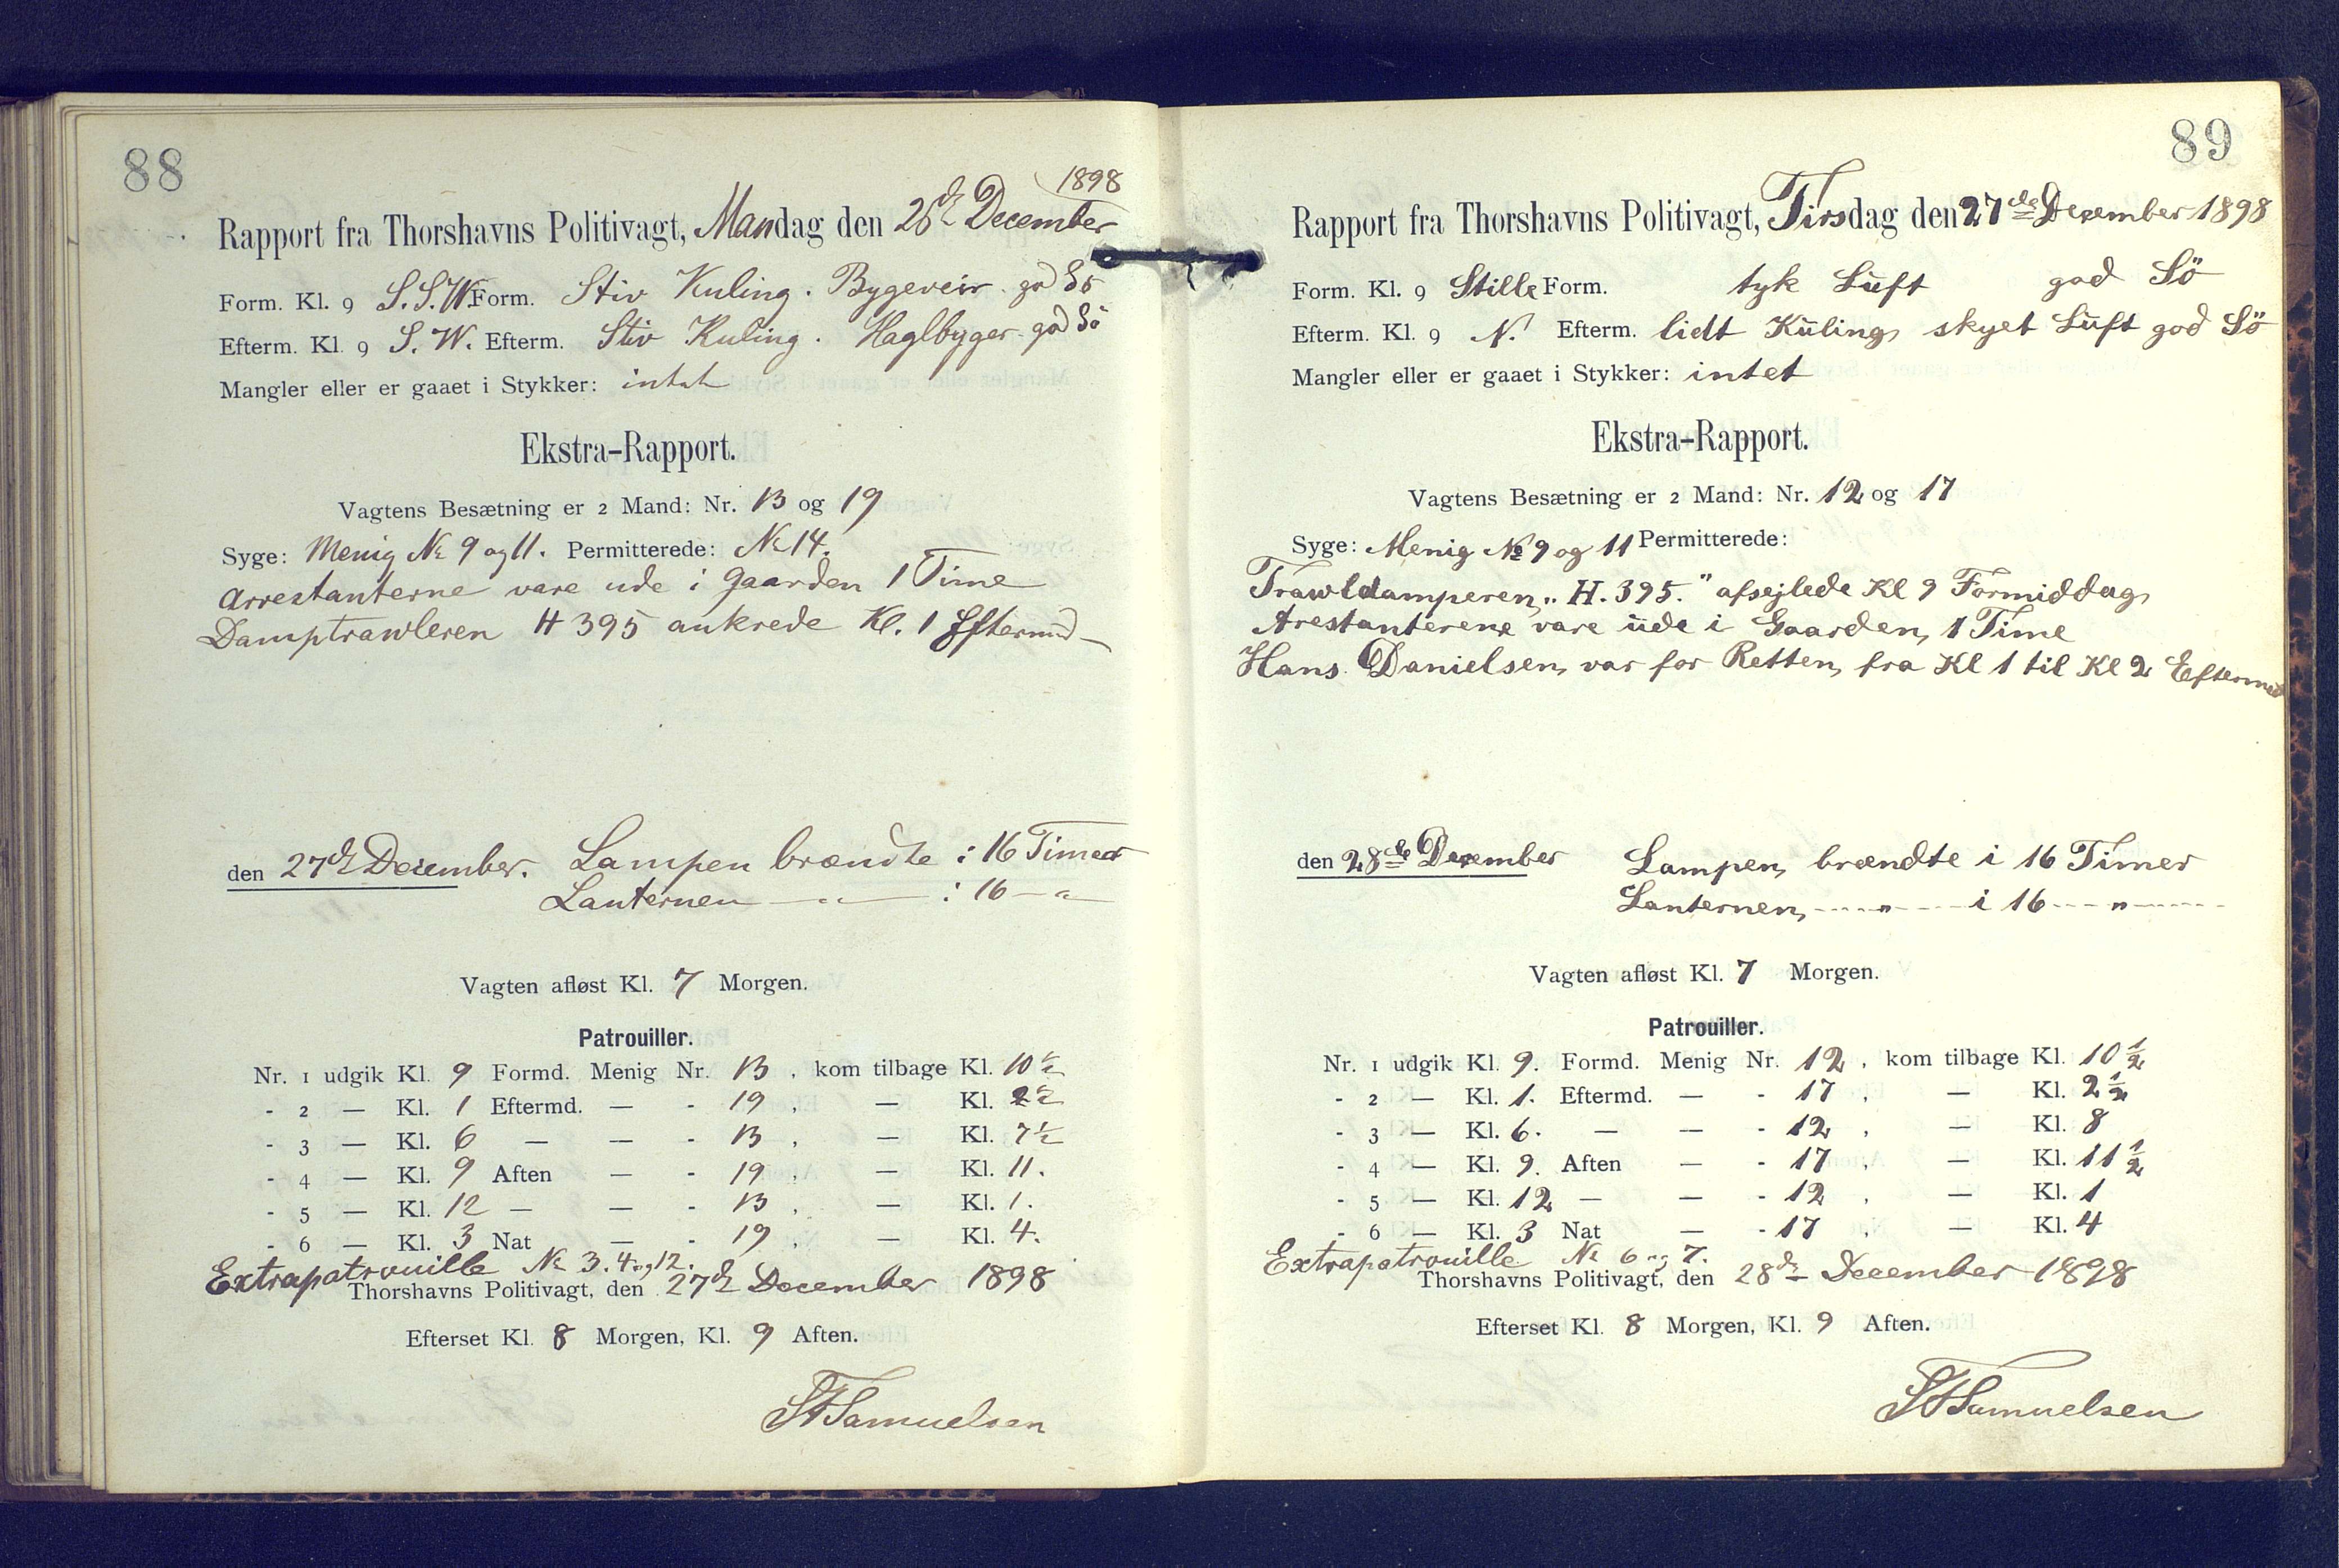 88
1898
Rapport fra Thorshavns Politivagt, Mandag den 26de December
Form. Kl. 9 S.S.W. Form. Stiv Kuling. Bygeveir. god Sö
Efterm. Kl. 9 S. W. Efterm. Stiv Kuling. Haglbyger. god Sö
Mangler eller er gaaet i Stykker: intet
Ekstra-Rapport.
Vagtens Besætning er 2 Mand: Nr. 13 og 19
Syge: Menig No 9 og 11. Permitterede: No 14.
Arrestanterne vare ude i Gaarden 1 Time
Damptrawleren H 395 ankrede Kl. 1 Eftermd
den 27de December. Lampen brændte i 16 Timer
Lanternen — " — i 16 — "
Vagten afløst Kl. 7 Morgen.
Patrouiller.
Nr. 1 udgik Kl. 9 Formd. Menig Nr. 13, kom tilbage Kl. 10 1/2
- 2 — Kl. 1 Eftermd. — - 19, — Kl. 2 1/2
- 3 — Kl. 6 — — - 13, — Kl. 7 1/2
- 4 — Kl. 9 Aften — - 19, — Kl. 11.
- 5 — Kl. 12 — — - 13, — Kl. 1.
- 6 — Kl. 3 Nat — - 19, — Kl. 4.
Extrapatrouille No 3. 4 og 12.
Thorshavns Politivagt, den 27de December 1898
Efterset Kl. 8 Morgen, Kl. 9 Aften.
Samuelsen
89
Rapport fra Thorshavns Politivagt, Tirsdag den 27de December 1898
Form. Kl. 9 Stille Form. tyk Luft god Sö
Efterm. Kl. 9 N. Efterm. lidt Kuling, skyet Luft god Sö
Mangler eller er gaaet i Stykker: intet
Ekstra-Rapport.
Vagtens Besætning er 2 Mand: Nr. 12 og 17
Syge: Menig No 9 og 11 Permitterede:
Trawldamperen „H. 395." afsejlede Kl 9 Formiddag
Arestanterene vare ude i Gaarden, 1 Time
Hans Danielsen, var for Retten, fra Kl 1 til Kl 2 Eftermed
den 28de December Lampen, brændte i 16 Timer
Lanternen, ---- " ---- i 16 --- " ----
Vagten afløst Kl. 7 Morgen.
Patrouiller.
Nr. 1 udgik Kl. 9. Formd. Menig Nr. 12, kom tilbage Kl. 10 1/2
- 2 — Kl. 1. Eftermd. — - 17, — Kl. 2 1/2
- 3 — Kl. 6. — — - 12, — Kl. 8
- 4 — Kl. 9. Aften — - 17, — Kl. 11 1/2
- 5 — Kl. 12 — — - 12, — Kl. 1
- 6 — Kl. 3 Nat — - 17, — Kl. 4
Extrapatrouille No 6 og 7.
Thorshavns Politivagt, den 28de December 1898
Efterset Kl. 8 Morgen, Kl. 9 Aften.
Samuelsen